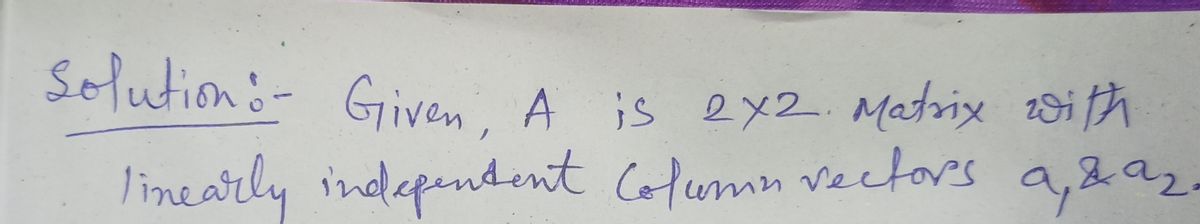 Solution:- Given, A is 2x2. Matrix with
linearly independent Column vectors a₁ & a₂.